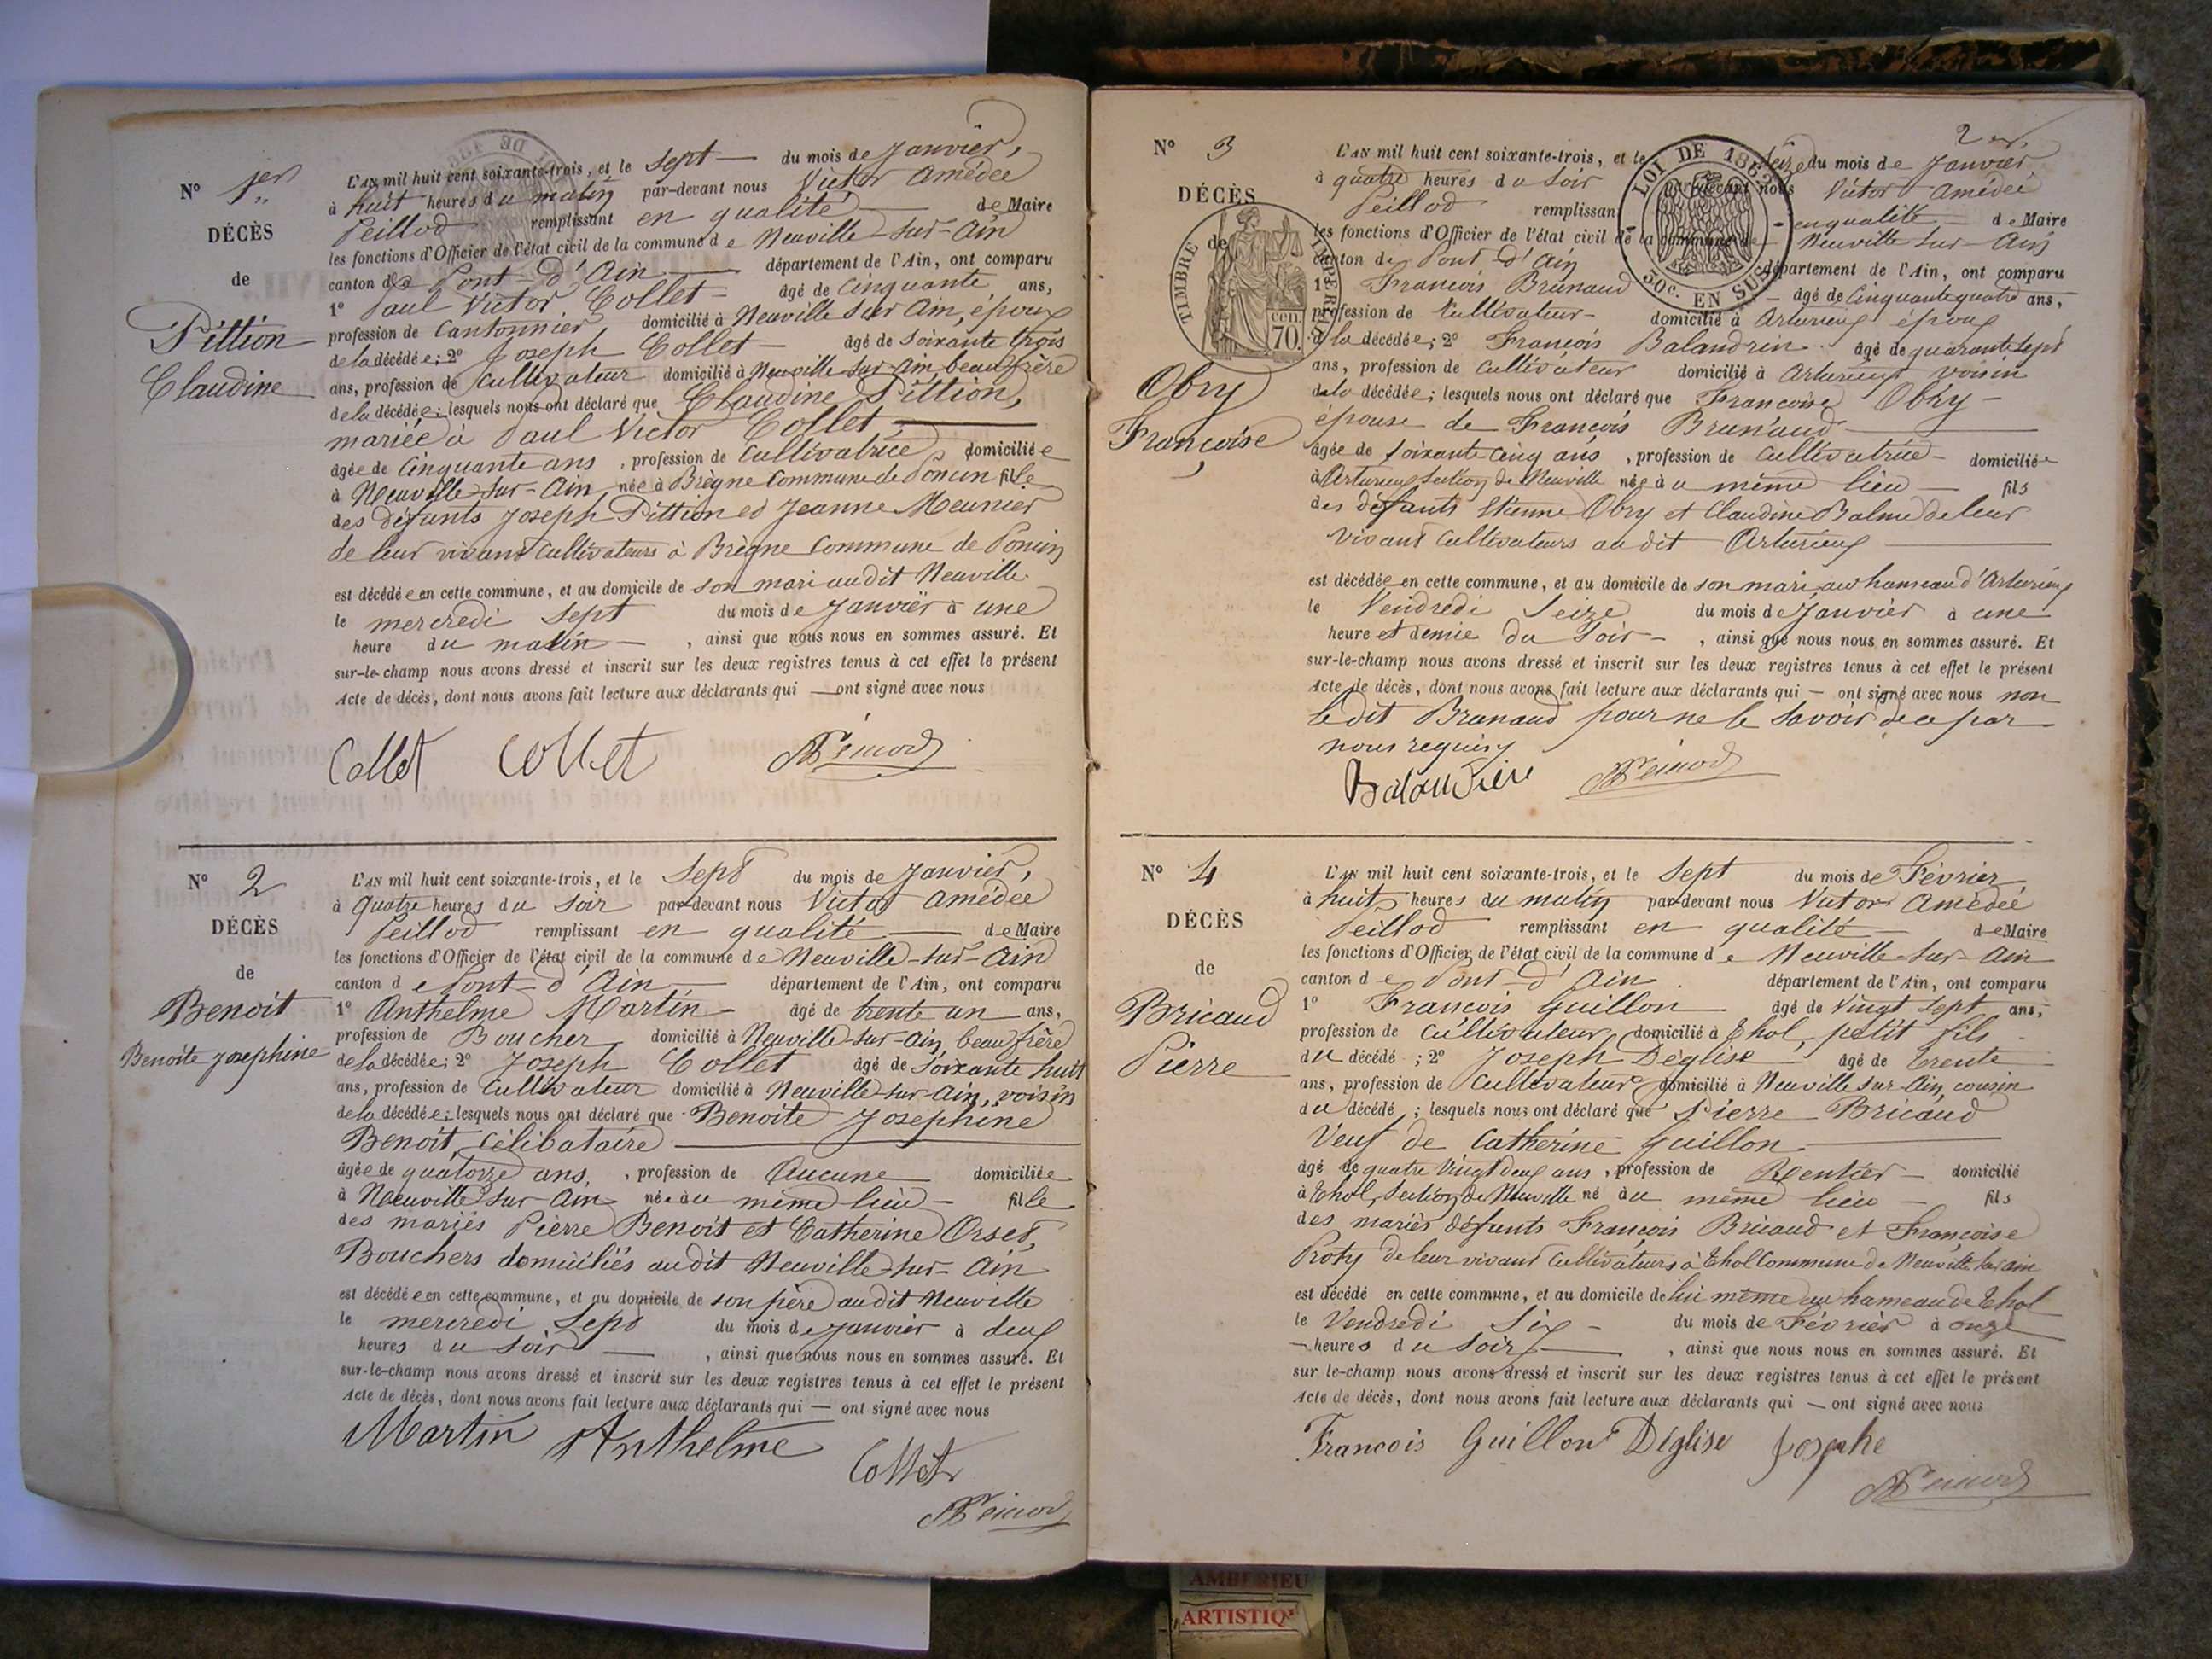 N° 1er
DÉCÈS
de
Pittion
Claudine
L'AN mil huit cent soixante-trois, et le sept du mois de Janvier,
à huit heures du matin par-devant nous Victor Amédée
Peillod remplissant en qualité de Maire
les fonctions d'Officier de l'état civil de la commune de Neuville-sur-Ain
canton de Pont-d'Ain département de l'Ain, ont comparu
1° Paul Victor Collet âgé de Cinquante ans,
profession de Cantonnier domicilié à Neuville sur Ain, époux
de la décédée; 2° Joseph Collet âgé de soixante trois
ans, profession de Cultivateur domicilié à Neuville-sur-Ain, beau frère
de la décédée; lesquels nous ont déclaré que Claudine Pittion,
mariée à Paul Victor Collet
âgée de Cinquante ans, profession de Cultivatrice, domiciliée
à Neuville-sur-Ain, née à Brègne Commune de Poncin fille
des défunts Joseph Pittion et Jeanne Meunier
de leur vivant Cultivateurs à Brègne Commune de Poncin
est décédée en cette commune, et au domicile de son mari au dit Neuville
le mercredi sept du mois de Janvier à une
heure du matin, ainsi que nous nous en sommes assuré. Et
sur-le-champ nous avons dressé et inscrit sur les deux registres tenus à cet effet le présent
Acte de décès, dont nous avons fait lecture aux déclarants qui — ont signé avec nous
Collet Collet
N° 2
DÉCÈS
de
Benoit
Benoite Josephine
L'AN mil huit cent soixante-trois, et le Sept du mois de Janvier,
à Quatre heures du soir par-devant nous Victor Amédée
Peillod remplissant en qualité de Maire
les fonctions d'Officier de l'état civil de la commune de Neuville-sur-Ain
canton de Pont-d'Ain département de l'Ain, ont comparu
1° Anthelme Martin âgé de trente un ans,
profession de Boucher domicilié à Neuville-sur-Ain, beau frère
de la décédée; 2° Joseph Collet âgé de soixante huit
ans, profession de Cultivateur domicilié à Neuville-sur-Ain, voisin
de la décédée; lesquels nous ont déclaré que Benoite Josephine
Benoit, Célibataire
âgée de quatorze ans, profession de Aucune domiciliée
à Neuville sur Ain née au même lieu fille
des mariés Pierre Benoit et Catherine Orset,
Bouchers domiciliés au dit Neuville-sur-Ain
est décédée en cette commune, et au domicile de son père au dit Neuville
le mercredi Sept du mois de Janvier à deux
heures du soir, ainsi que nous nous en sommes assuré. Et
sur-le-champ nous avons dressé et inscrit sur les deux registres tenus à cet effet le présent
Acte de décès, dont nous avons fait lecture aux déclarants qui — ont signé avec nous
Martin Anthelme Collet
2
N° 3
DÉCÈS
de
Obry
Françoise
TIMBRE IMPERIAL
70. cen.
LOI DE 1862
50c. EN SUS
L'AN mil huit cent soixante-trois, et le seize du mois de Janvier
à quatre heures du soir par-devant nous Victor Amédée
Peillod remplissant en qualité de Maire
les fonctions d'Officier de l'état civil de la commune de Neuville-sur-Ain
canton de Pont-d'Ain département de l'Ain, ont comparu
1° François Brunaud âgé de Cinquante quatre ans,
profession de Cultivateur domicilié à Arturieux époux
de la décédée; 2° François Balandrin âgé de quarante sept
ans, profession de Cultivateur domicilié à Arturieux voisin
de la décédée; lesquels nous ont déclaré que Françoise Obry
épouse de François Brunaud
âgée de soixante cinq ans, profession de Cultivatrice domiciliée
à Arturieux Section de Neuville née au même lieu fils
des défunts Etienne Obry et Claudine Balme de leur
vivant Cultivateurs au dit Arturieux
est décédée en cette commune, et au domicile de son mari au hameau d'Arturieux
le Vendredi Seize du mois de Janvier à une
heure et demie du Soir, ainsi que nous nous en sommes assuré. Et
sur-le-champ nous avons dressé et inscrit sur les deux registres tenus à cet effet le présent
Acte de décès, dont nous avons fait lecture aux déclarants qui — ont signé avec nous non
le dit Brunaud pour ne le savoir de ce par
nous requis
N° 4
DÉCÈS
de
Bricaud
Pierre
L'AN mil huit cent soixante-trois, et le Sept du mois de Février
à huit heures du matin par-devant nous Victor Amédée
Peillod remplissant en qualité de Maire
les fonctions d'Officier de l'état civil de la commune de Neuville-sur-Ain
canton de Pont-d'Ain département de l'Ain, ont comparu
1° François Guillon âgé de Vingt sept ans,
profession de Cultivateur domicilié à Thol, petit fils
du décédé; 2° Joseph Déglise âgé de trente
ans, profession de Cultivateur domicilié à Neuville sur-Ain, cousin
du décédé; lesquels nous ont déclaré que Pierre Bricaud
Veuf de Catherine Guillon
âgé de quatre Vingt deux ans, profession de Rentier domicilié
à Thol, Section de Neuville né au même lieu fils
des mariés défunts François Bricaud et Françoise
Proty de leur vivant Cultivateurs à Thol Commune de Neuville sur ain
est décédé en cette commune, et au domicile de lui même au hameau de Thol
le Vendredi Six du mois de Février à onze
heures du soir, ainsi que nous nous en sommes assuré. Et
sur-le-champ nous avons dressé et inscrit sur les deux registres tenus à cet effet le présent
Acte de décès, dont nous avons fait lecture aux déclarants qui — ont signé avec nous
Francois Guillon Déglise Josephe
AMBERIEU
ARTISTIQ